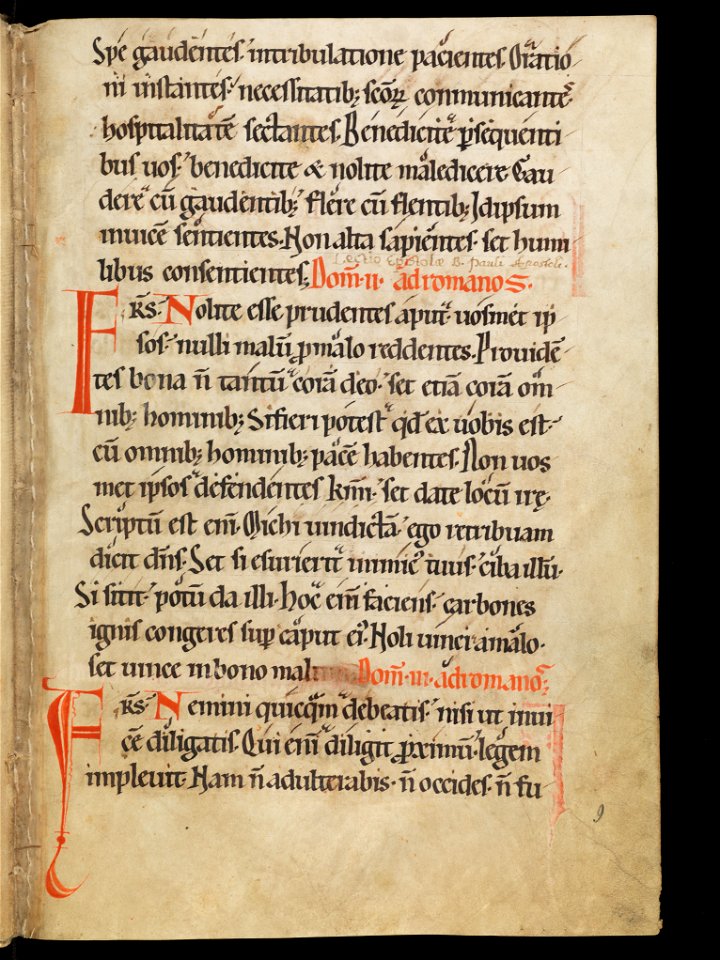 Spe gaudentes. intribulatione pacientes. Oratio
ni instantes. necessitatibꝫ scōꝝ communicantes.
hospitalitatē sectantes. Benedicite ꝑsequenti
bus uos. benedicite & nolite maledicere. Gau
dere cū gaudentibꝫ. flere cū flentibꝫ. Idipsum
inuicē sentientes. Non alta sapientes. set humi
Lectio Epistolæ B. Pauli Apostoli.
libus consentientes. Dom̄. ii. ad romanos.
FRS. Nolite esse prudentes aput uosmet ip
sos. nulli malū ꝓ malo reddentes. Prouidē
tes bona n̄ tantū corā deo. set etiā corā om
nibꝫ hominibꝫ. Si fieri potest qđ ex uobis est.
cū omnibꝫ hominibꝫ pacē habentes. Non uos
met ipsos defendentes km̄i. set date locū irę.
Scriptū est eni̅. Michi uindictā. ego retribuam
dicit dn̄s. Set si esurierit inimicꝰ tuus. ciba illū.
Si sitit. potū da illi. Hoc eni̅ faciens. carbones
ignis congeres suꝑ caput eiꝰ. Noli uinci a malo.
set uince in bono malum Dom̄. iii. ad romanos.
FRS. Nemini quicq̄m debeatis. nisi ut inui
cē diligatis. Qui eni̅ diligit ꝓximū. legem
impleuit. Nam n̄ adulterabis. n̄ occides. n̄ fu
9